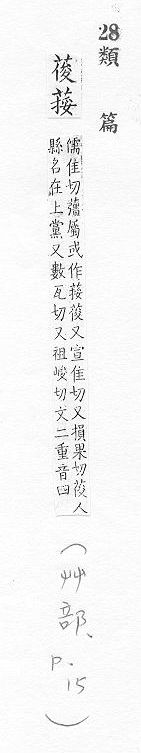 28類篇
葰蓌
儒隹切薚屬或作蓌葰又宣隹切又損果切葰人
縣名在上黨又數瓦切又祖峻切文二重音四
(艸部、p.15)